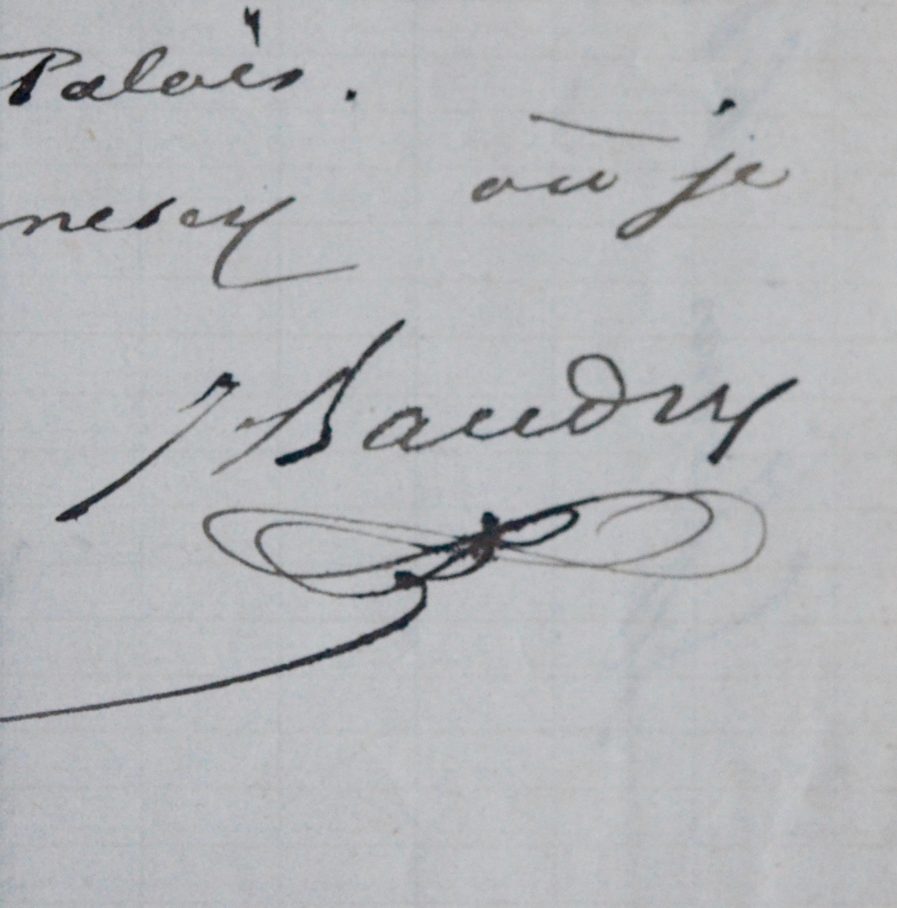 Palais.
où je
J Baudry